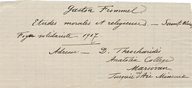 Gaston Frommel
Etudes morales et religieuses
Foyer solidariste 1907
Adresse - D. Theocharides
Anatolia College
Marsovan
Turquie d'Asie Mineure